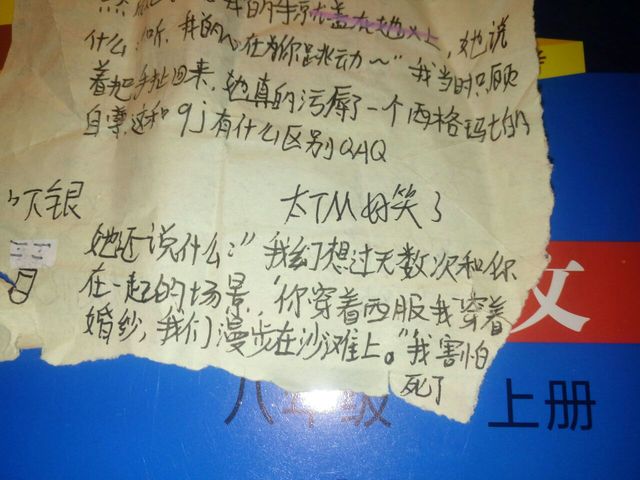 我的手就盖在她心上,她说
什么:"听,我的心在为你跳动~"我当时只顾
着把手扯回来,她真的污辱了一个西格玛女的
自尊,这和9j有什么区别QAQ
银
太TM好笑了
她还说什么:"我幻想过无数次和你
在一起的场景,你穿着西服我穿着
婚纱,我们漫步在沙滩上。"我害怕
死了
文
八年级 上册